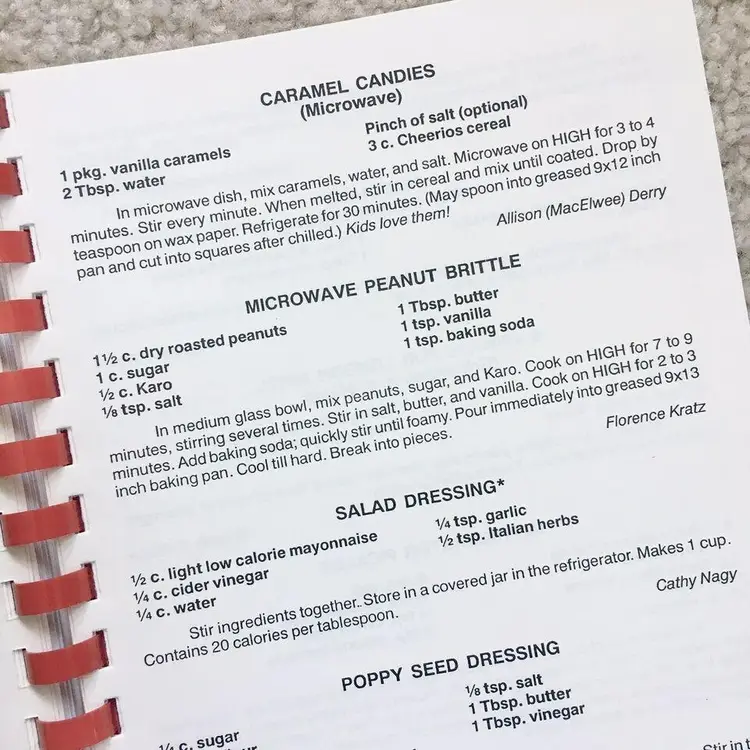 CARAMEL CANDIES
(Microwave)
1 pkg. vanilla caramels
2 Tbsp. water
Pinch of salt (optional)
3 c. Cheerios cereal
In microwave dish, mix caramels, water, and salt. Microwave on HIGH for 3 to 4
minutes. Stir every minute. When melted, stir in cereal and mix until coated. Drop by
teaspoon on wax paper. Refrigerate for 30 minutes. (May spoon into greased 9x12 inch
pan and cut into squares after chilled.) Kids love them!
Allison (MacElwee) Derry
MICROWAVE PEANUT BRITTLE
1½ c. dry roasted peanuts
1 c. sugar
½ c. Karo
⅛ tsp. salt
1 Tbsp. butter
1 tsp. vanilla
1 tsp. baking soda
In medium glass bowl, mix peanuts, sugar, and Karo. Cook on HIGH for 7 to 9
minutes, stirring several times. Stir in salt, butter, and vanilla. Cook on HIGH for 2 to 3
minutes. Add baking soda; quickly stir until foamy. Pour immediately into greased 9x13
inch baking pan. Cool till hard. Break into pieces.
Florence Kratz
SALAD DRESSING*
½ c. light low calorie mayonnaise
¼ c. cider vinegar
¼ c. water
¼ tsp. garlic
½ tsp. Italian herbs
Stir ingredients together. Store in a covered jar in the refrigerator. Makes 1 cup.
Contains 20 calories per tablespoon.
Cathy Nagy
POPPY SEED DRESSING
¼ c. sugar
⅛ tsp. salt
1 Tbsp. butter
1 Tbsp. vinegar
Stir in